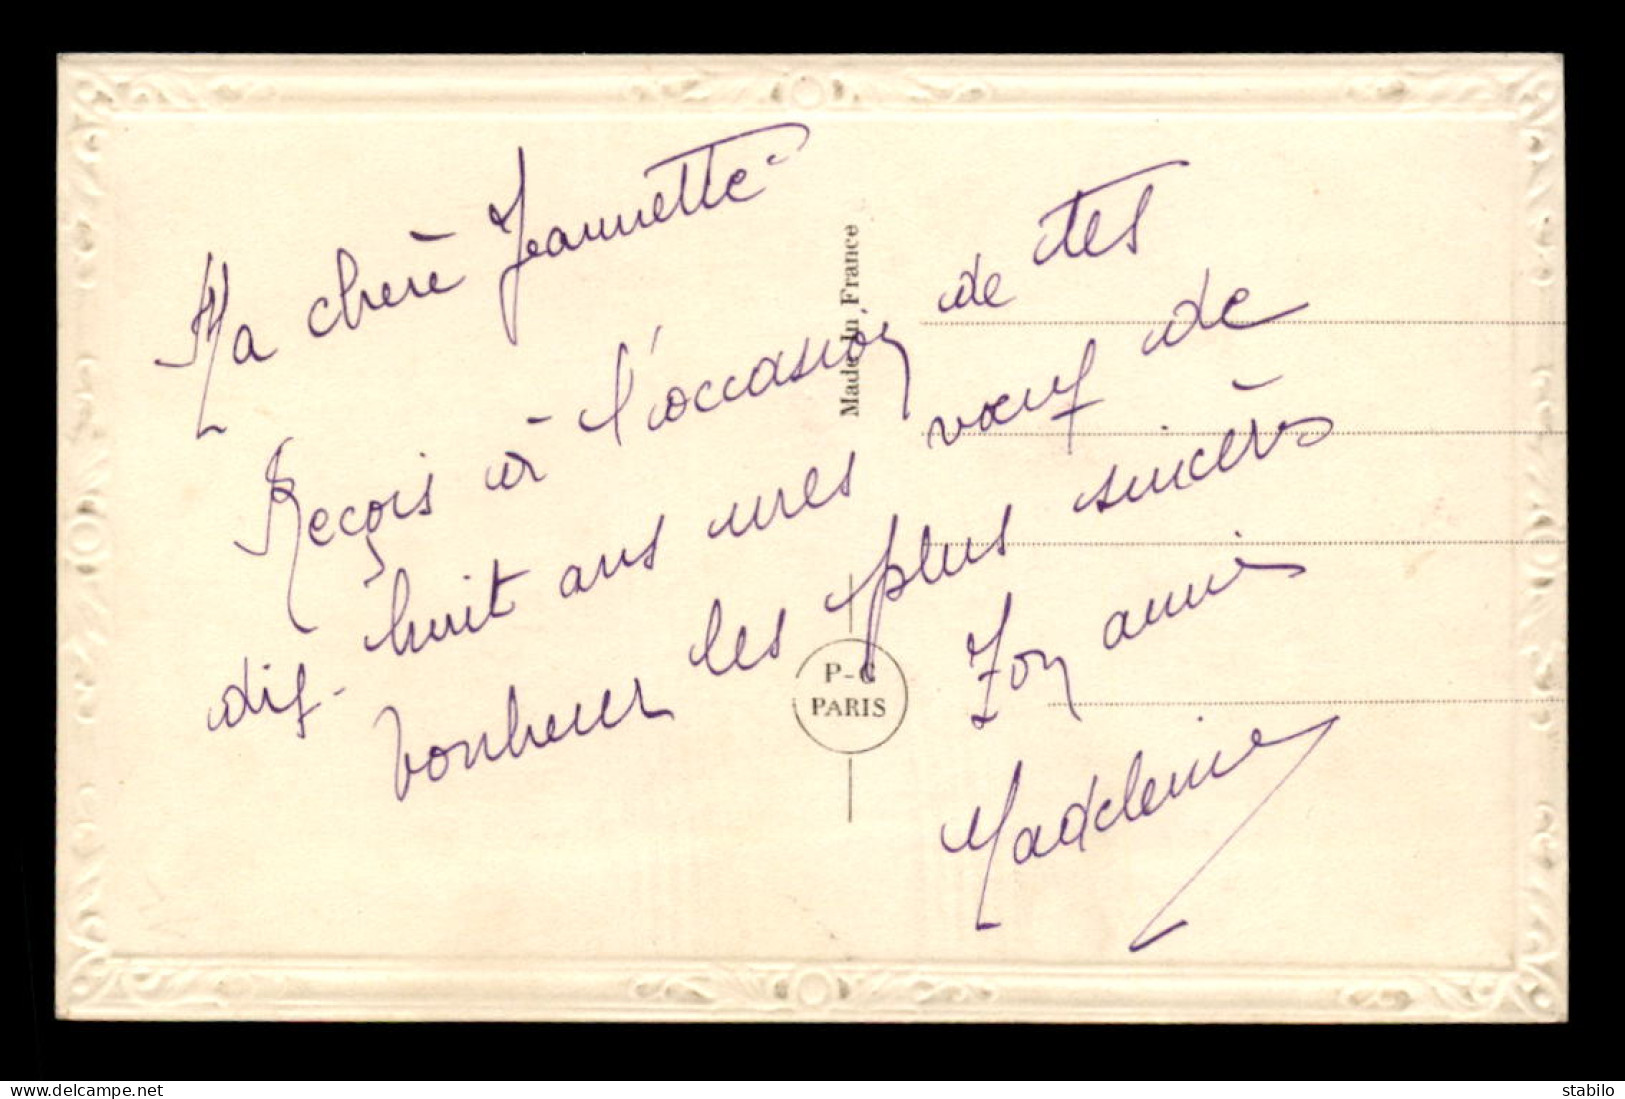 Ma chère Jeannette
Reçois à l'occasion de tes
dix-huit ans mes voeux de
bonheur les plus sincères
Ton amie
Madeleine
Made in France
P-C
PARIS
delcampe.net
stabilo